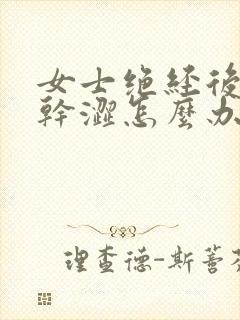 女士绝经後
幹澀怎麼办
理查德-斯蒈